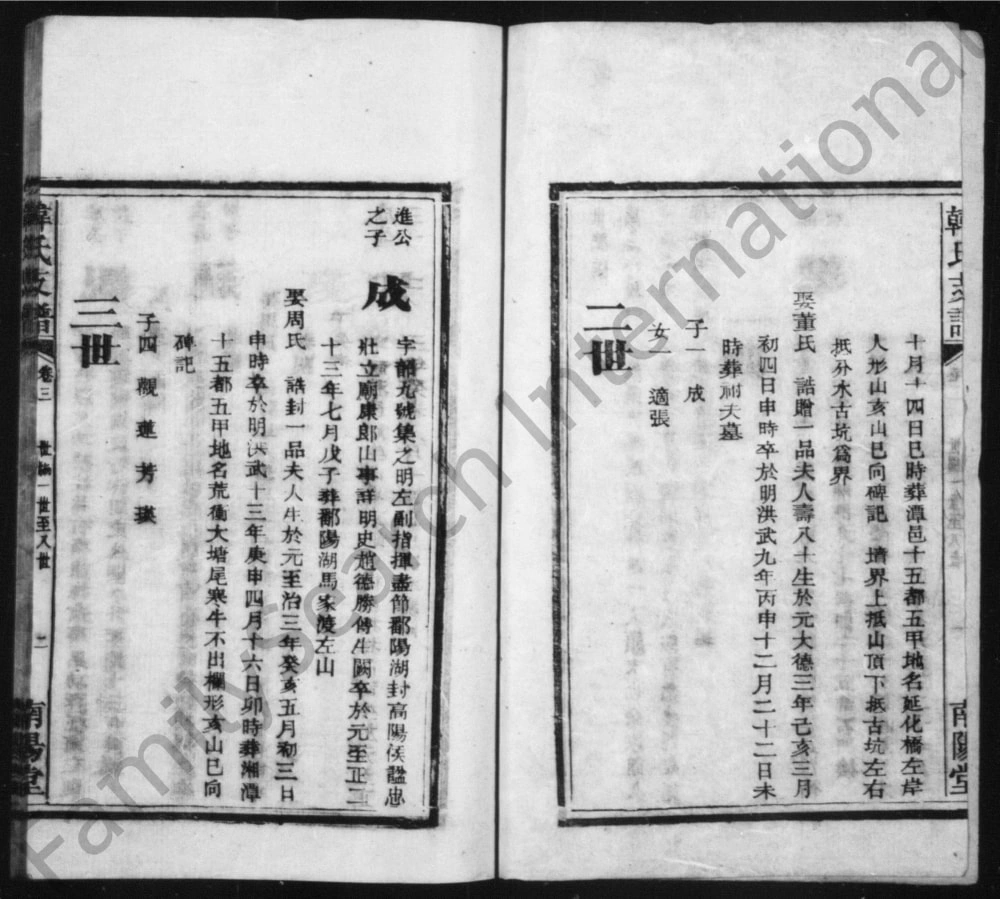 十月十四日巳時葬潭邑十五都五甲地名延化橋左岸
人形山亥山巳向碑記 墳界上抵山頂下抵古坑左右
抵分水古坑爲界
娶董氏 誥贈一品夫人壽八十生於元大德三年己亥三月
初四日申時卒於明洪武九年丙申十二月二十二日未
時葬祔夫墓
子一 成
女一 適張
二世
南陽堂
進公
之子
成
字韶九號集之明左副指揮盡節鄱陽湖封高陽侯諡忠
壯立廟康郎山事詳明史趙德勝傳生闕卒於元至正二
十三年七月戊子葬鄱陽湖馬家渡左山
娶周氏 誥封一品夫人生於元至治三年癸亥五月初三日
申時卒於明洪武十三年庚申四月十六日卯時葬湘潭
十五都五甲地名荒衝大塘尾寒牛不出欄形亥山巳向
碑記
子四 觀 蓮 芳 瑛
三世
韓氏支譜
卷三
世編一世至八世
二
南陽堂
FamilySearch International